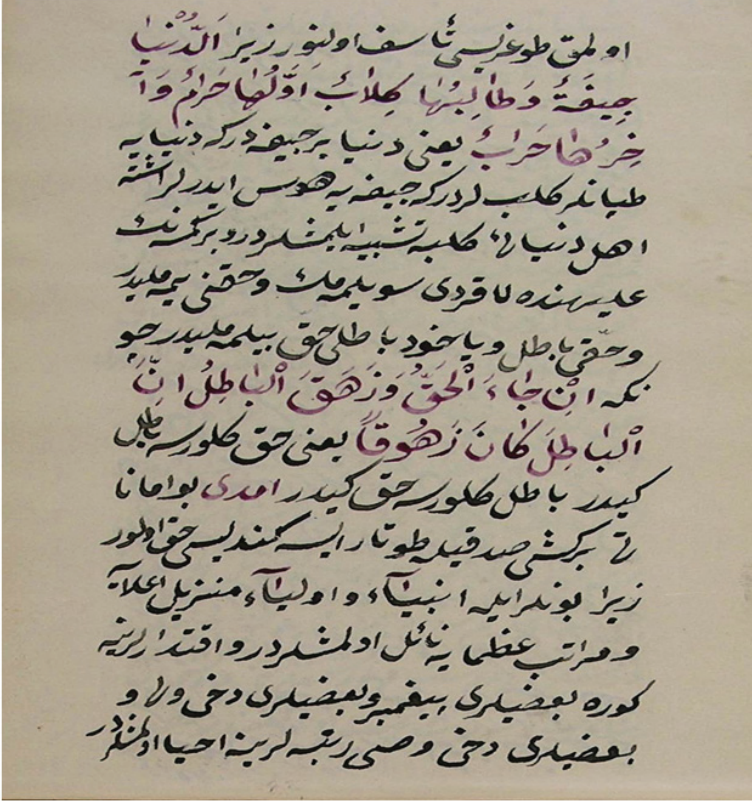 اولمق طوغریسی تأسف اولنور زیرا اَلدُّنْیَا
جِیفَةٌ وَطَالِبُهَا کِلَابٌ اَوَّلُهَا حَرَامٌ وَآ
خِرُهَا خَرَابٌ یعنی دنیا بر جیفه درکه دنیایه
طیانلر کلب لردرکه جیفه یه هوس ایدرلر اشته
اهل دنیایی کلبه تشبیه ایلمشلردر و بر کمسه نك
علیهنده لاقردی سویلیمه مك وحقنی یمه ملیدر
وحقی باطل ویاخود باطلی حق بیلمه ملیدر چو
نکه اِنْ جَاءَ اْلحَقُّ وَزَهَقَ اْلبَاطِلُ اِنَّ
اْلبَاطِلَ کَانَ زَهُوقًا یعنی حق کلورسه باطل
کیدر باطل کلورسه حق کیدر امدی بو امانا
تی بر کشی صدقیله طوتار ایسه کندیسی حق اولور
زیرا بونلر ایله انبیآء و اولیآء منزیل اعلایه
ومراتب عظمایه نائل اولمشلردر و اقتدارلرینه
کوره بعضیلری پیغمبر وبعضیلری دخی ولی و
بعضیلری دخی وصی رتبه لرینه احیا اولمشلردر